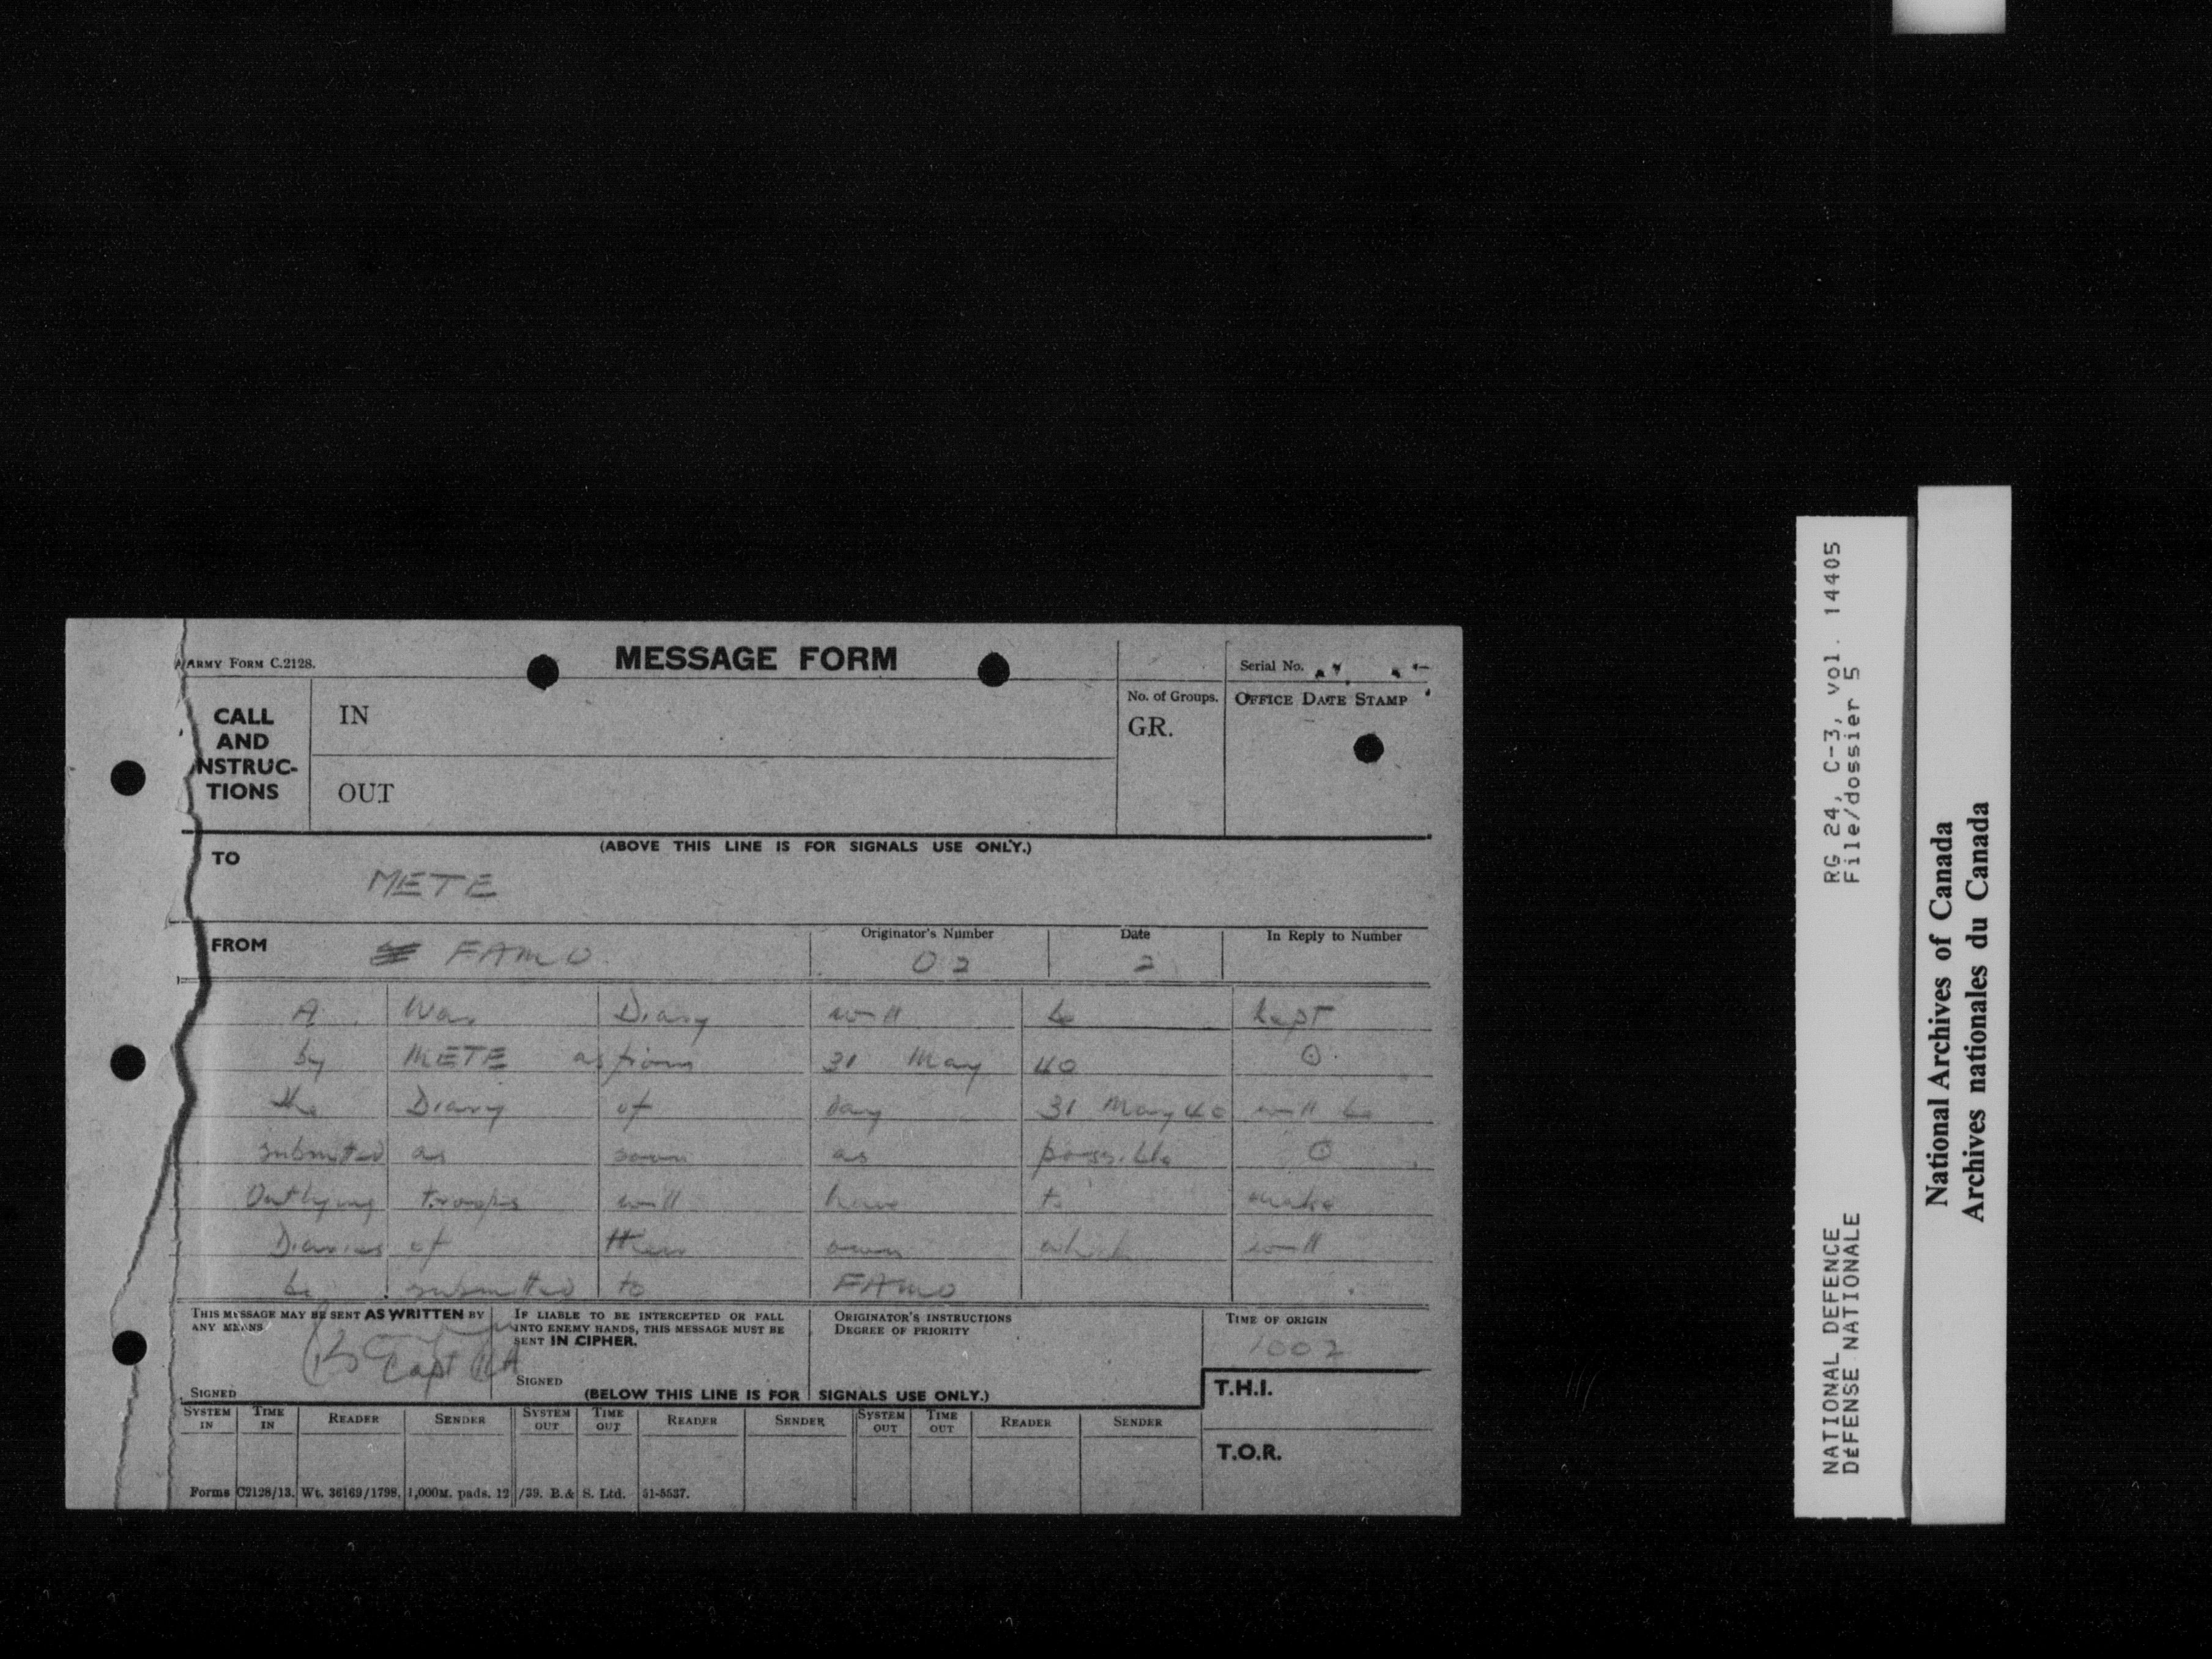 ARMY FORM C.2128.
MESSAGE FORM
Serial No.
CALL AND INSTRUC-TIONS
IN
OUT
No. of Groups.
GR.
OFFICE DATE STAMP
(ABOVE THIS LINE IS FOR SIGNALS USE ONLY.)
TO
METE
FROM
FAMO
Originator's Number
02
Date
2
In Reply to Number
A War Diary will be kept
by METE as from 31 May 40 ⊙
the Diary of day 31 May 40 will be
submitted as soon as possible ⊙
Outlying troops will have to make
Diaries of their own which will
be submitted to FAMO
THIS MESSAGE MAY BE SENT AS WRITTEN BY
ANY MEANS
Capt RA
SIGNED
IF LIABLE TO BE INTERCEPTED OR FALL
INTO ENEMY HANDS, THIS MESSAGE MUST BE
SENT IN CIPHER.
SIGNED
ORIGINATOR'S INSTRUCTIONS
DEGREE OF PRIORITY
TIME OF ORIGIN
1002
(BELOW THIS LINE IS FOR SIGNALS USE ONLY.)
T.H.I.
T.O.R.
SYSTEM IN TIME IN READER SENDER SYSTEM OUT TIME OUT READER SENDER SYSTEM OUT TIME OUT READER SENDER
Forms C2128/13. Wt. 36169/1798. 1,000M. pads. 12/39. B.& S. Ltd. 51-5537.
NATIONAL DEFENCE RG 24, C-3, vol. 14405
DÉFENSE NATIONALE File/dossier 5
National Archives of Canada
Archives nationales du Canada